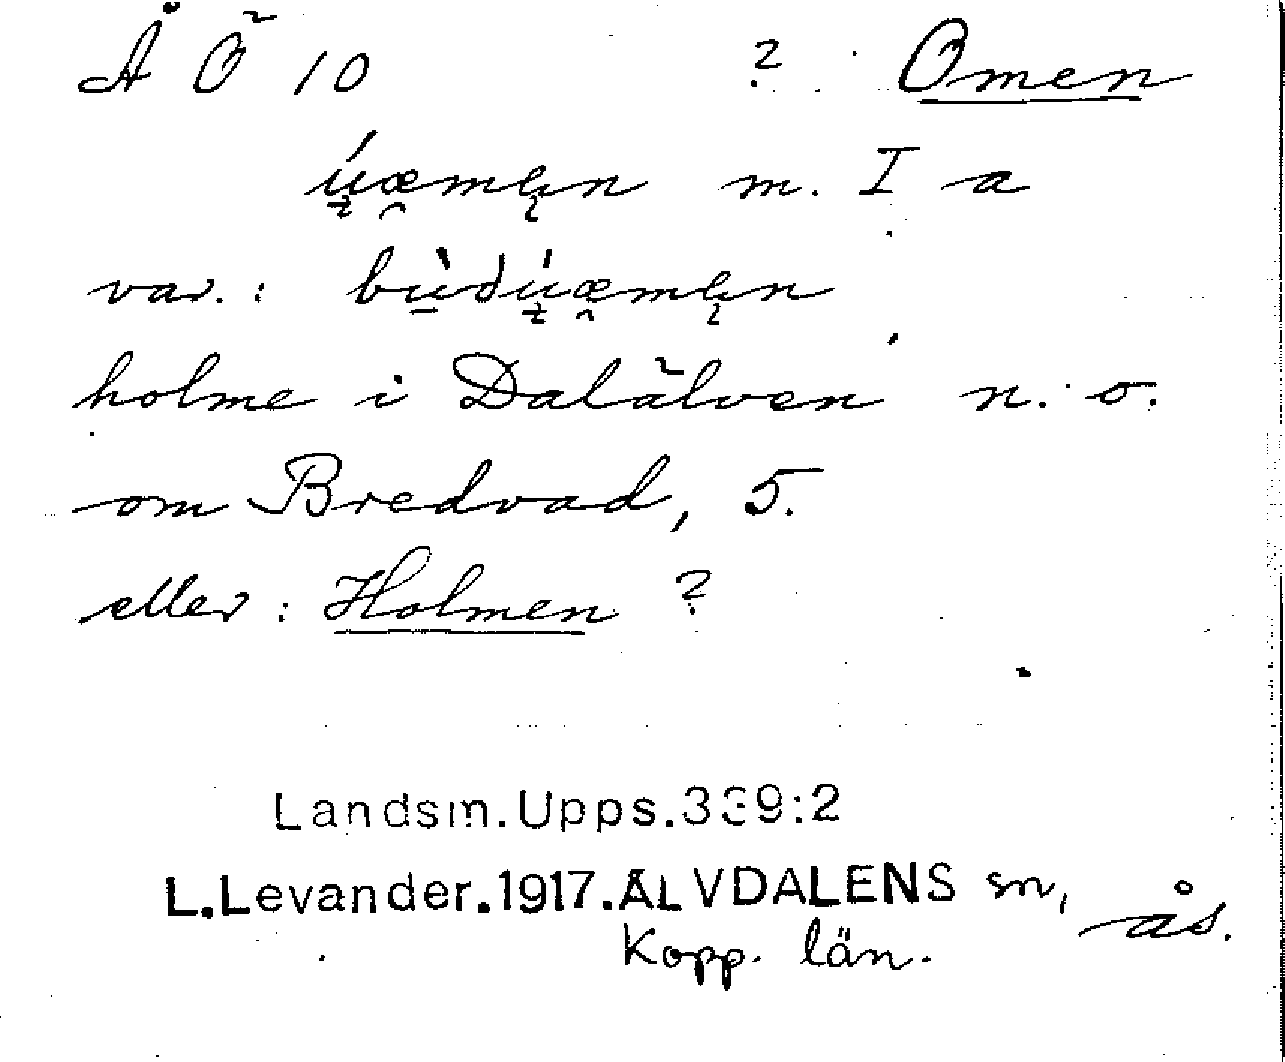 Å Ö 10 ? Omen
úæmen m. I a
var.: bùdúæmen
holme i Dalälven n. o.
om Bredvad, 5.
eller: Holmen ?
Landsm.Upps.339:2
L.Levander.1917.ÄLVDALENS sn, ås.
Kopp. län.